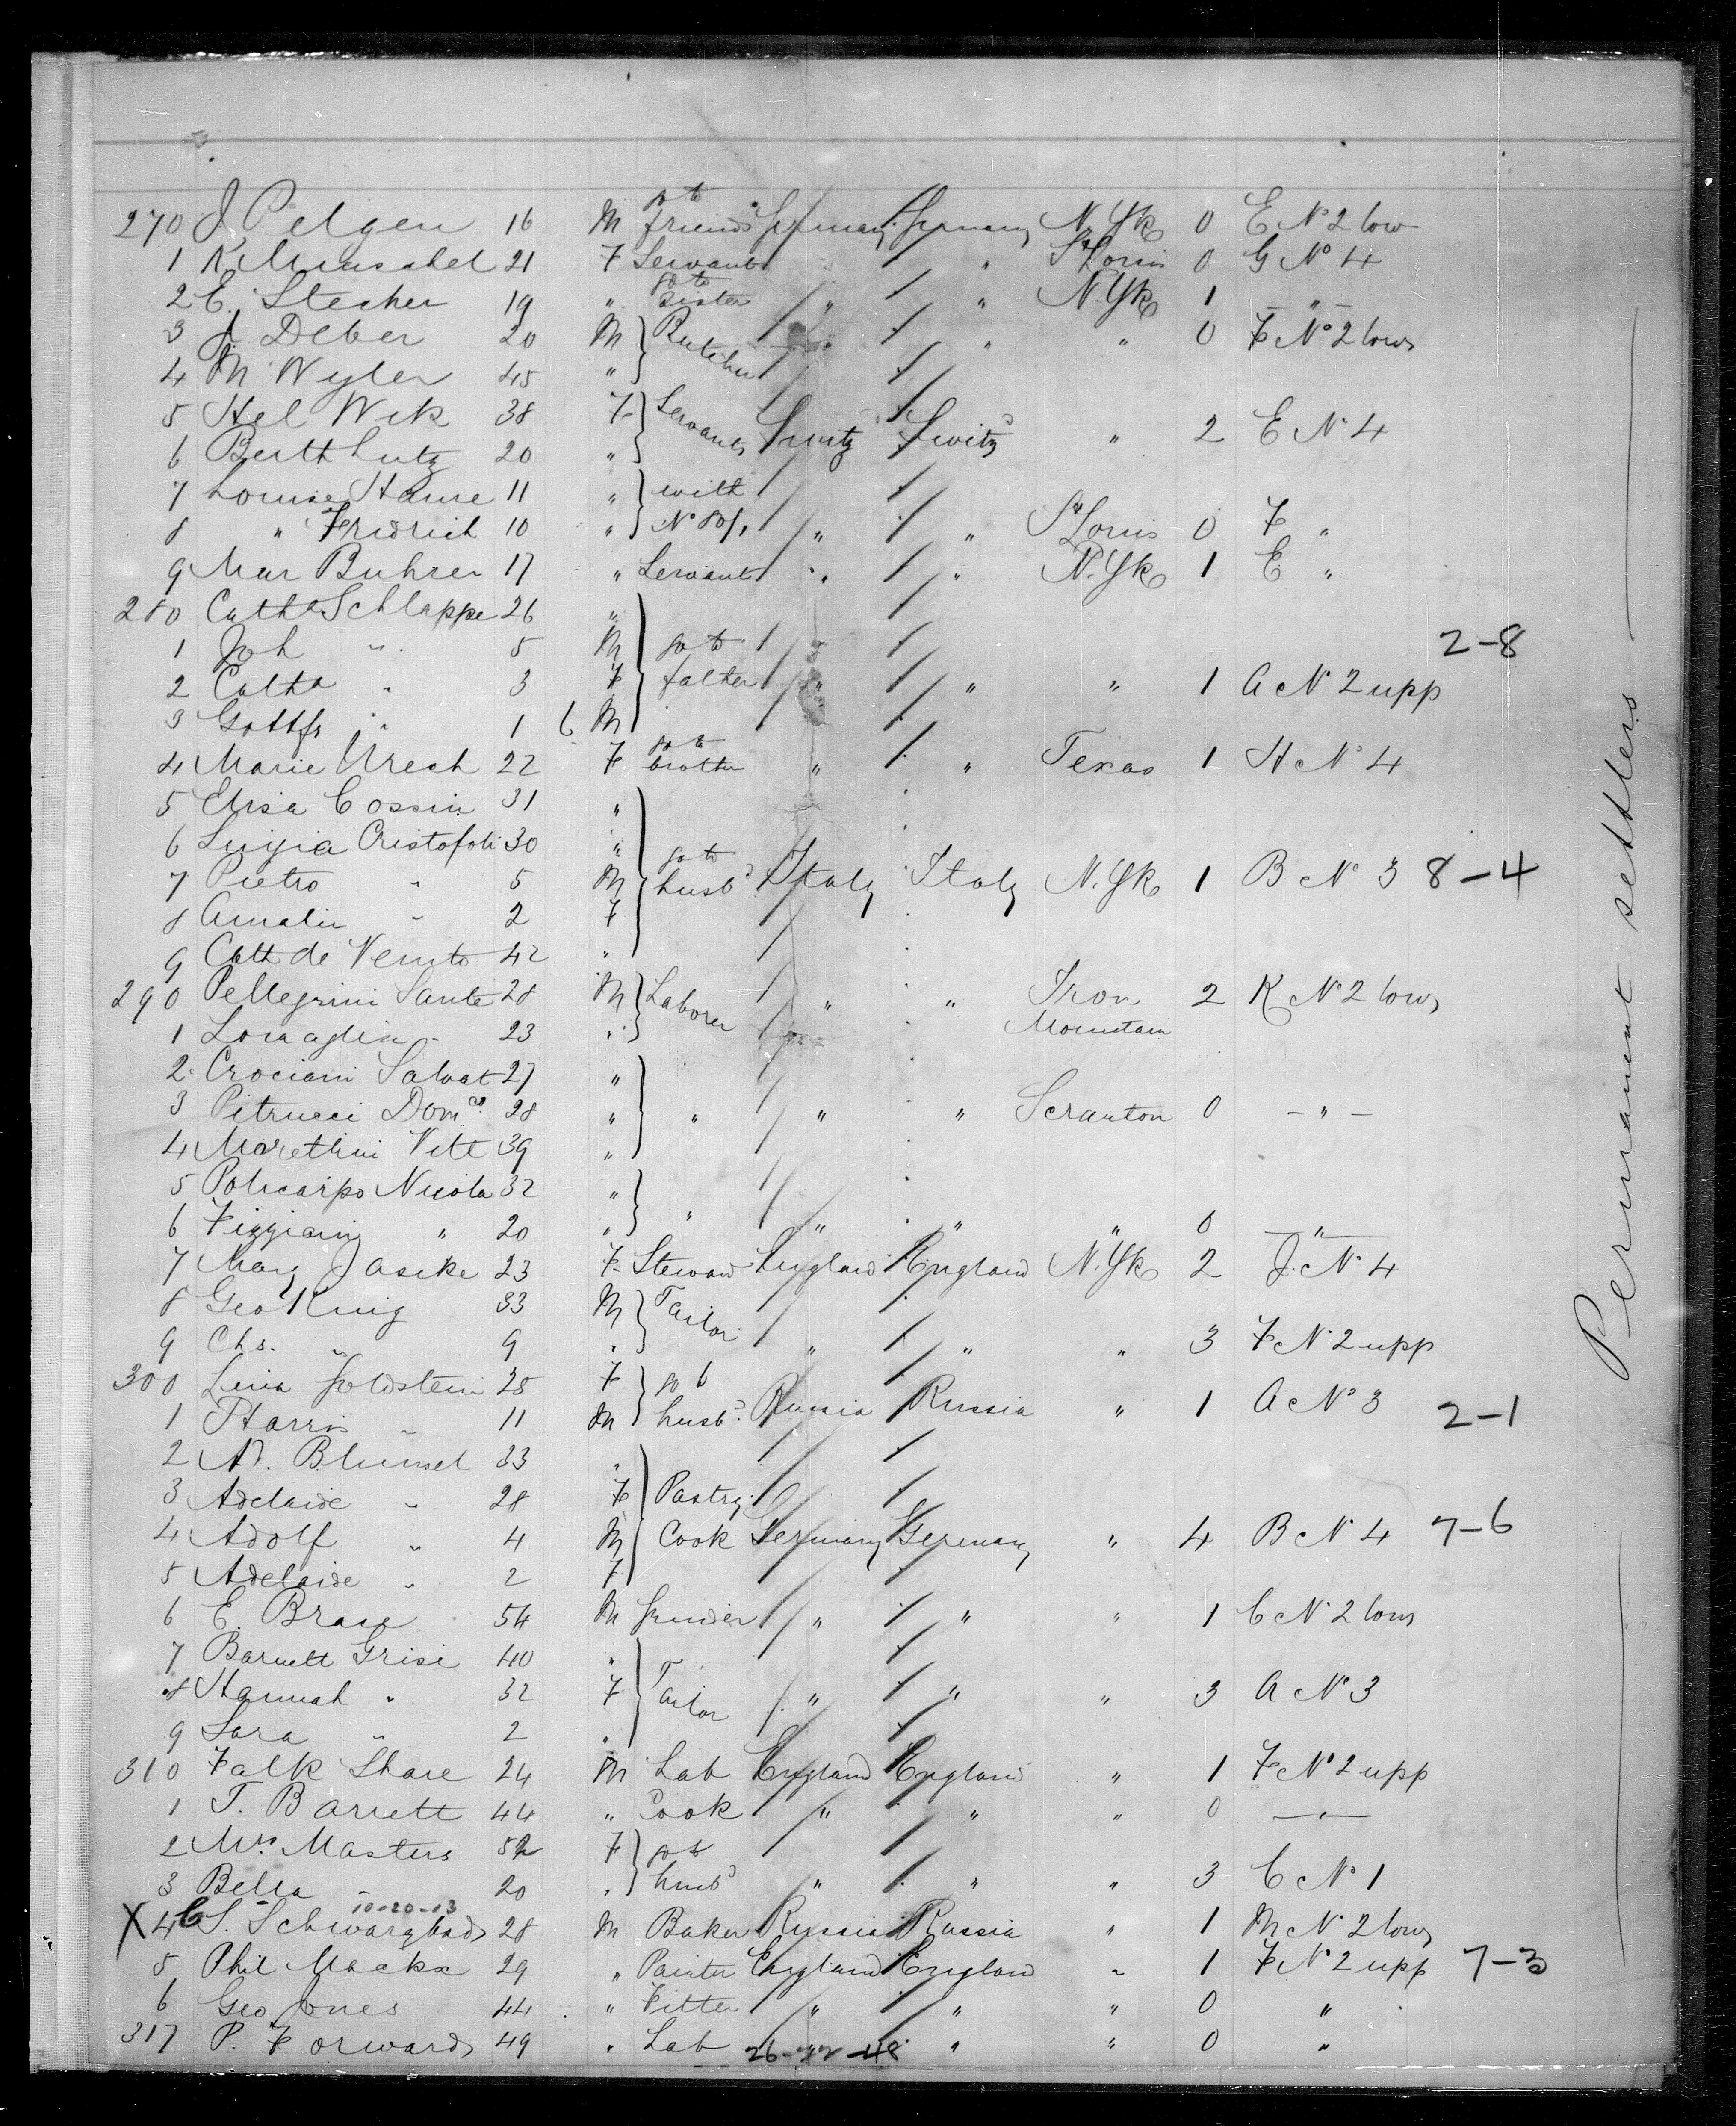 270 J. Pelgen 16 M go to friends Germany Germany N.Yk 0 E No 2 low
1 K. 21 F Servant " St Louis 0 G No 4
2 E. Stecher 19 " go to sister " " N.Yk 1 – " –
3 J Deber 20 M Butcher " " " 0 F No 2 low
4 M Wyler 45 "
5 Hel Wik 38 F Servants Switz Switz " 2 E No 4
6 Berth Lutz 20 "
7 Louise Haure 11 " with
8 " Fridrich 10 " No " " St Louis 0 F "
9 Mar Buhrer 17 " Servant " " N.Yk 1 E "
280 Catha Schlappe 26 "
1 Joh " 5 M go to 2–8
2 Catha " 3 F father " " " 1 A No 2 upp
3 Gottfr " 1 6 M
4 Marie Urech 22 F go to brother " " Texas 1 H No 4
5 Elisa Cossin 31 "
6 Luigia Cristofoli 30 "
7 Pietro " 5 M go to husbd Italy Italy N.Yk 1 B No 3 8–4
8 Amalia " 2 F
9 Catt de Venuto 42 "
290 Pellegrini Sante 28 M Laborer " " Iron Mountain 2 K No 2 low
1 " 23 "
2 Crociani Salvat 27 "
3 Pitrucci Domco 28 " " " " Scranton 0 – " –
4 Morettini Vitt 39 "
5 Policarpo Nicola 32 "
6 Fizziani " 20 " " " " " 0 – " –
7 Mary Jaseke 23 F Steward England England N.Yk 2 J. No 4
8 Geo King 33 M Tailor
9 Chs. " 9 " " " " 3 F No 2 upp
300 Lina Goldstein 28 F go to
1 Harris " 11 M husbd. Russia Russia " 1 A No 3 2–1
2 A. Blumel 33 "
3 Adelaide " 28 F Pastry
4 Adolf " 4 M Cook Germany Germany " 4 B No 4 7–6
5 Adelaide " 2 F
6 E. 54 M " " " 1 C No 2 low
7 Barnett Grisi 40 "
8 Hannah " 32 F Tailor " " " 3 A No 3
9 Sara " 2 "
310 Falk Share 24 M Lab England England " 1 F No 2 upp
1 T. Barrett 44 " Cook " " " 0 – " –
2 Mrs Masters 52 F go to
3 Bella " 20 " husbd " " " 3 C No 1
10-20-13
X 4 C S. Schwarzbad 28 M Baker Russia Russia " 1 M No 2 low
5 Phil Macks 29 " Painter England England " 1 F No 2 upp 7–3
6 Geo Jones 44 " Fitter " " " 0 "
317 P. Forward 49 " Lab " " " 0 "
Permanent settlers